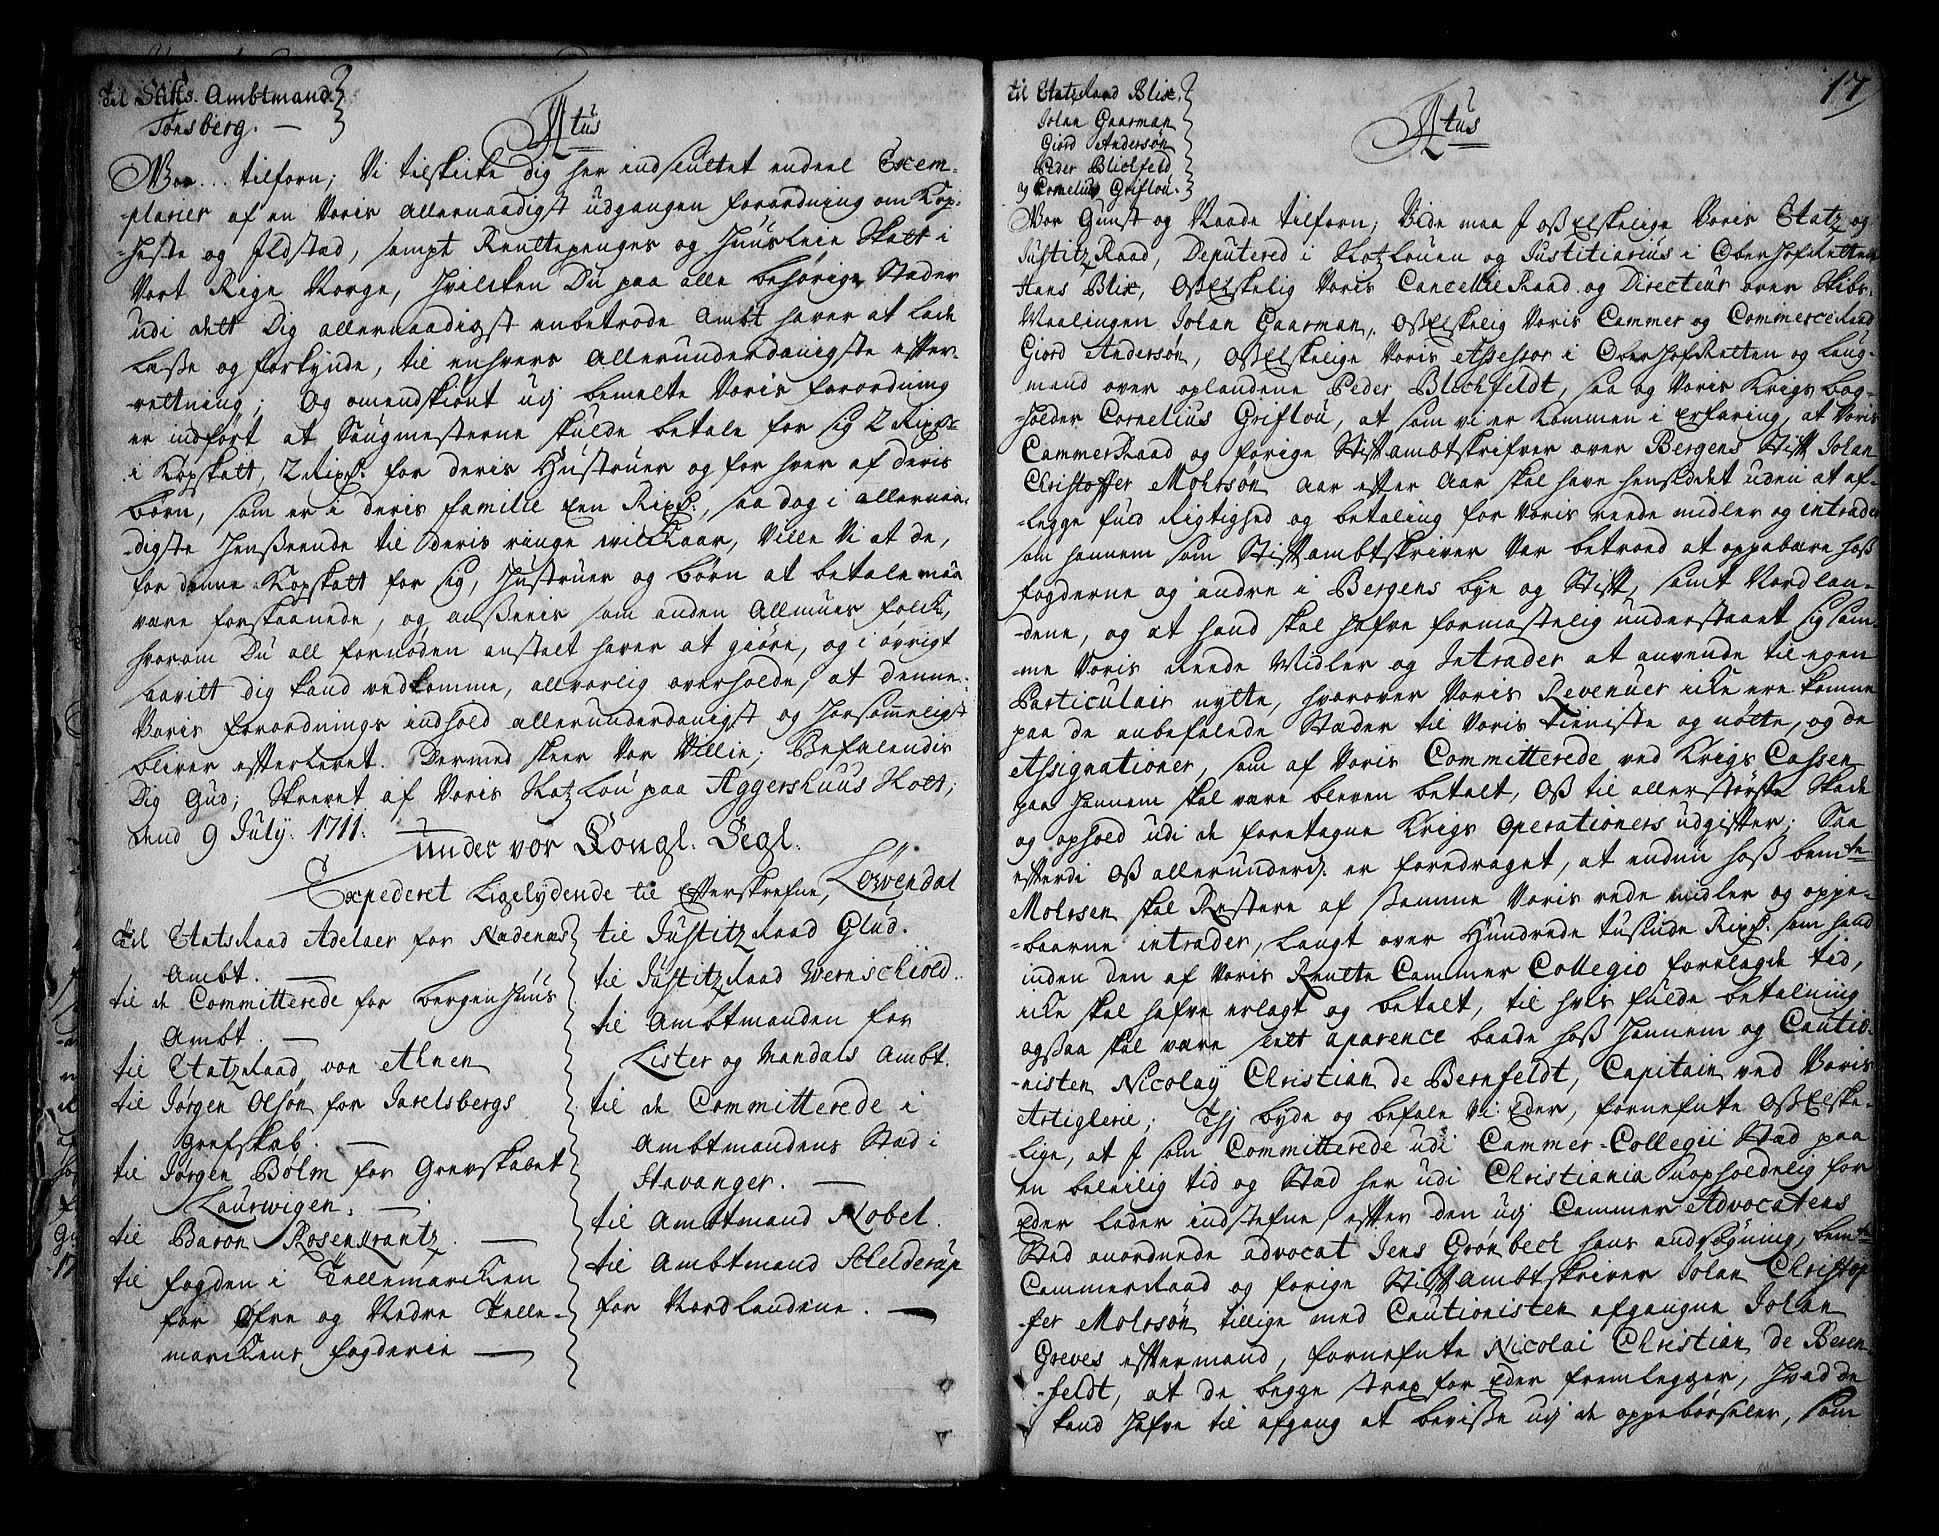 Til Stifts-Ambtmand
Tonsberg. —
F4tus
Vor... tilforn; Vi tilskicke dig her indsluttet endeel Exem-
-plarier af en Voris Allernaadigst udgangen forordning om Kop-
-Heste og Ildstad, sampt Renttepenges og Huusleie Skatt i
Vort Rige Norge, hvilcken Du paa alle behørige Stæder
udi dett Dig allernaadigst anbetrode Ambt haver at lade
læsse og forkynde, til enhvers Allerunderdanigste efter-
-rettning; Og omendskiønt udj bemelte Voris forordning
er indført at Saugmesterne skulde betale for sig 2 Rixdr
i Kopskatt, 2 Rixdr. for deris Hustruer og for hver af deris
börn, som er i deris familie Een Rixdr., saa dog i allernaa-
-digste Henseende til deris ringe willkaar, Ville Vi at de,
for denne Kopskatt for sig, Hustruer og börn at betale maa
være forskaanede, og ansseeis som anden Allmues folck,
hvorom Du all fornøden anstalt haver at giøre, og i övrigt
saavit dig kand vedkomme, allvorlig overholde, at denne
Voris forordnings indhold allerunderdanigst og horsommeligst
bliver efterlevet. Dermed skeer Vor Villie; Befalendis
Dig Gud; Skrevet af Voris Slotz Lou paa Aggershuus Slott;
Dend 9 July. 1711.
under vor Kongl. Segl.
Expederet Ligelydende til Efterskrefne, Löwendal
Til Etatsraad Adelaer for Nedenæs
Ambt. —
til de Committerede for bergenhuus
Ambt. —
til Etatzraad von Ahnen
til Jørgen Olsøn for Jarelsbergs
Grefskab. —
til Jørgen Bolm for Grevskabet
Laurwigen. —
til Baron Rosenkrantz. —
til fogden i Tellemarcken
for Øfre og Nedre Telle-
marckens fogderie —
til Justitzraad Glud.
til Justitzraad Wernschiold.
til Ambtmanden for
Lister og Mandals Ambt.
til de Committerede i
Ambtmandens Stæd i
Stavanger. —
til Ambtmand Nobel.
til Ambtmand Schelderup
for Nordlandene. —
17
til Etatzraad Blix.
Johan Gaarman
Giord Andersøn
Peder Blichfeld
og Cornelius Griflou.
F4tus
Vor Gunst og Naade tilforn; Vide maa I oss Elskelige Voris Etatz og
Justitz Raad, Deputered i Slotzlouen og Justitiarius i Oberhofretten
Hans Blix, Oss Elskelig Voris Cancellie Raad og Directeur over Skibs-
Maalingen Johan Gaarman, Oss Elskelig Voris Cammer og Commerceraad
Giord Andersøn, oss Elskelige Voris Assessor i Ober HofRetten og Laug-
mand over oplandene Peder Blichfeldt, saa og Voris Krigs bog-
-holder Cornelius Griflou, at som vi er kommen i erfaring, at Voris
CammerRaad og forige Stiftambtskrifver over Bergens Stift Johan
Christoffer Mohrsøn Aar efter Aar skal have hensiddet uden at af-
-legge fuld Rigtighed og betaling for Voris reede midler og intrader
som hannem som Stiftambtskriver var betroed at oppebære hoss
fogderne og andre i Bergens bye og Stift, samt Nordlan-
-dene, og at hand skal hafve formastelig understaaet sig sam-
-me Voris reede Midler og Intrader at anvende til egen
Particulair nytte, hvorover Voris Revenuer icke ere komne
paa de anbefalede Stæder til Voris tieniste og nötte, og de
Assignationer, som af Voris Committerede ved Krigs Cassen
paa Hannem skal være bleven betalt, Oss til allerstørste Skade
og ophold udi de foretagne Krigs Operationers udgifter; Saa
efterdi Oss allerunderd. er foredraget, at endnu hoss bemte
Mohrsen skal Restere af samme Voris rede midler og oppe-
-baarne intrader, Langt over Hundrede tusinde Rixdr. som hand
inden den af Voris Rentte Cammer Collegio forelagde tid,
icke skal hafve erlagt og betalt, til hvis fulde betalning
ogsaa skal være slett aparence baade hoss Hannem og Cautio-
-nisten Nicolay Christian de Bernfeldt, Capitain ved Voris
Artiglerie; Thj byde og befale Vi Eder, fornefnte Oss Elske-
-lige, at I som Committerede udi Cammer-Collegii Stæd paa
en beleilig tid og Stæd her udi Christiania uopholdelig for
Eder lader indstefne, efter den udj Cammer Advocatens
Stæd anordnede advocat Jens Grønbech hans andsøgning, bemte
Cammerraad og forige Stift Ambtskriver Johan Christop-
-fer Mohrsøn tillige med Cautionisten afgangne Johan
Greves eftermand, fornefnte Nicolai Christian de Beren-
-feldt, at de begge strax for Eder fremlegger, hvad de
kand hafve til afgang at bevisse udj de oppebörseler, som